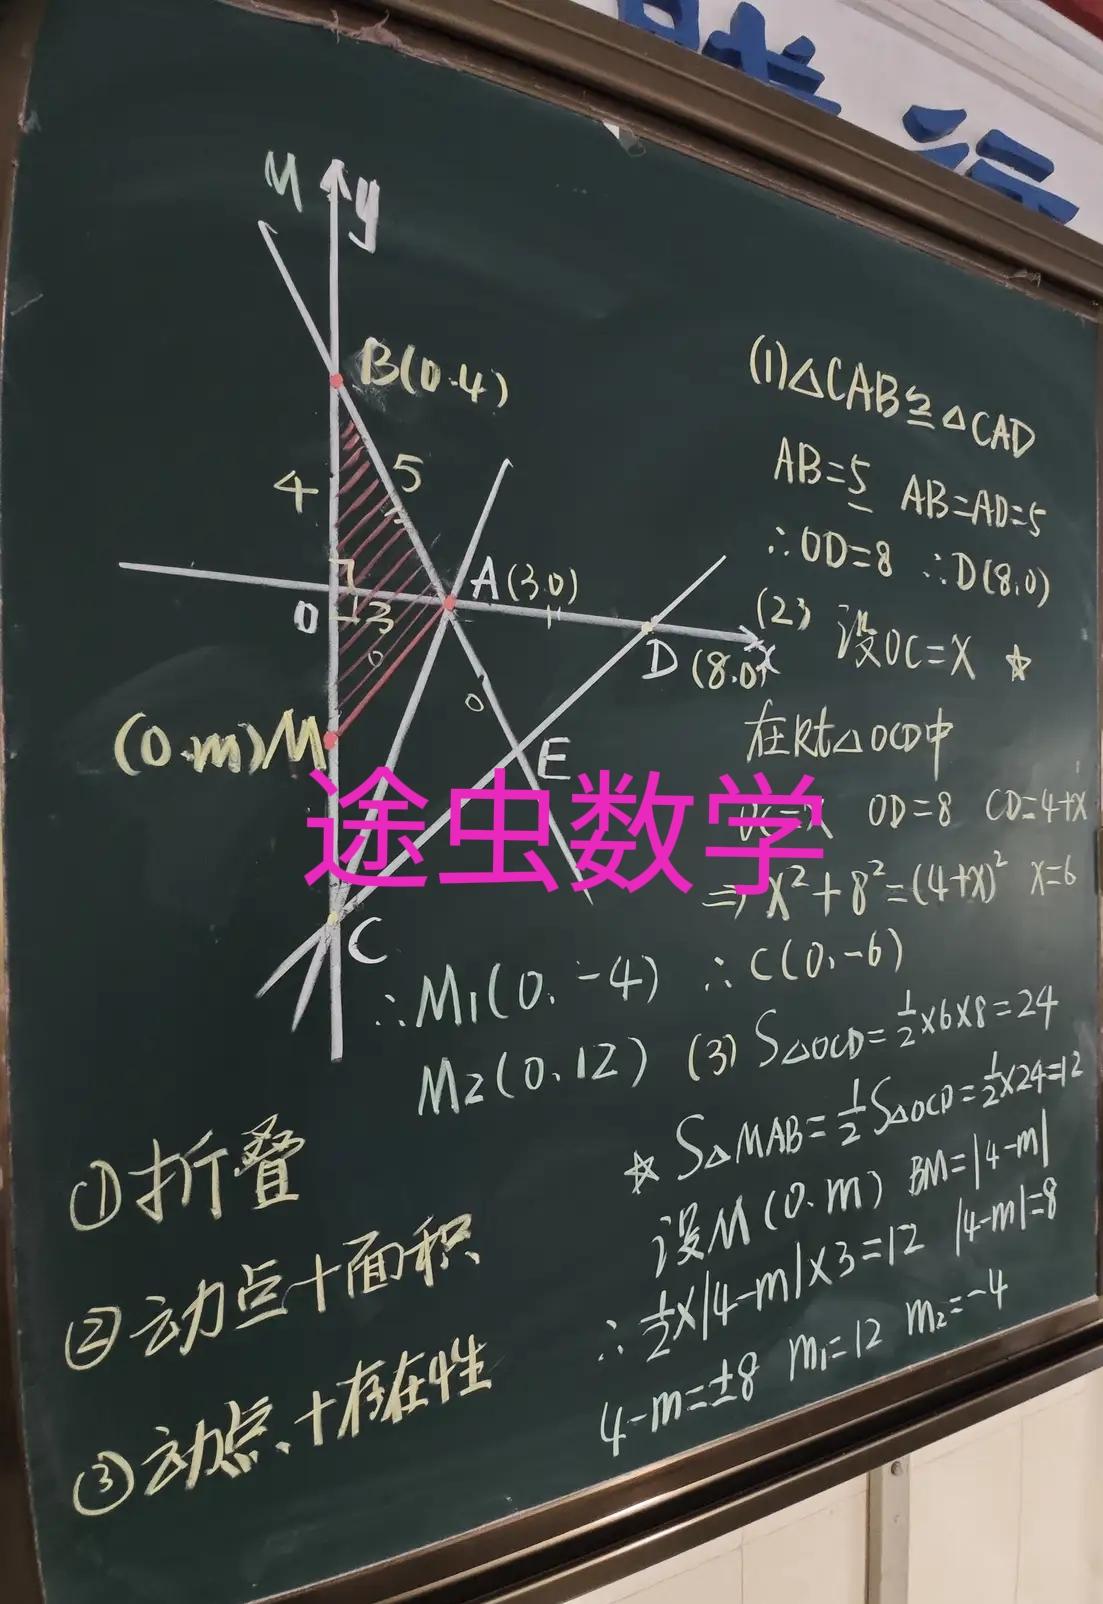 M
y
B(0.4)
4
5
O
3
A(3.0)
D(8.0)
x
(0.m)M
E
C
途虫数学
(1)△CAB≌△CAD
AB=5 AB=AD=5
∴OD=8 ∴D(8.0)
(2) 设OC=X ☆
在Rt△OCD中
OC=X OD=8 CD=4+x
⇒ X²+8²=(4+x)² x=6
∴C(0,-6)
∴M1(0,-4)
M2(0,12)
(3) S△OCD=½×6×8=24
☆ S△MAB=½S△OCD=½×24=12
设M(0.m) BM=|4-m|
∴½×|4-m|×3=12 |4-m|=8
4-m=±8 m1=12 m2=-4
①折叠
②动点+面积
③动点、+存在性